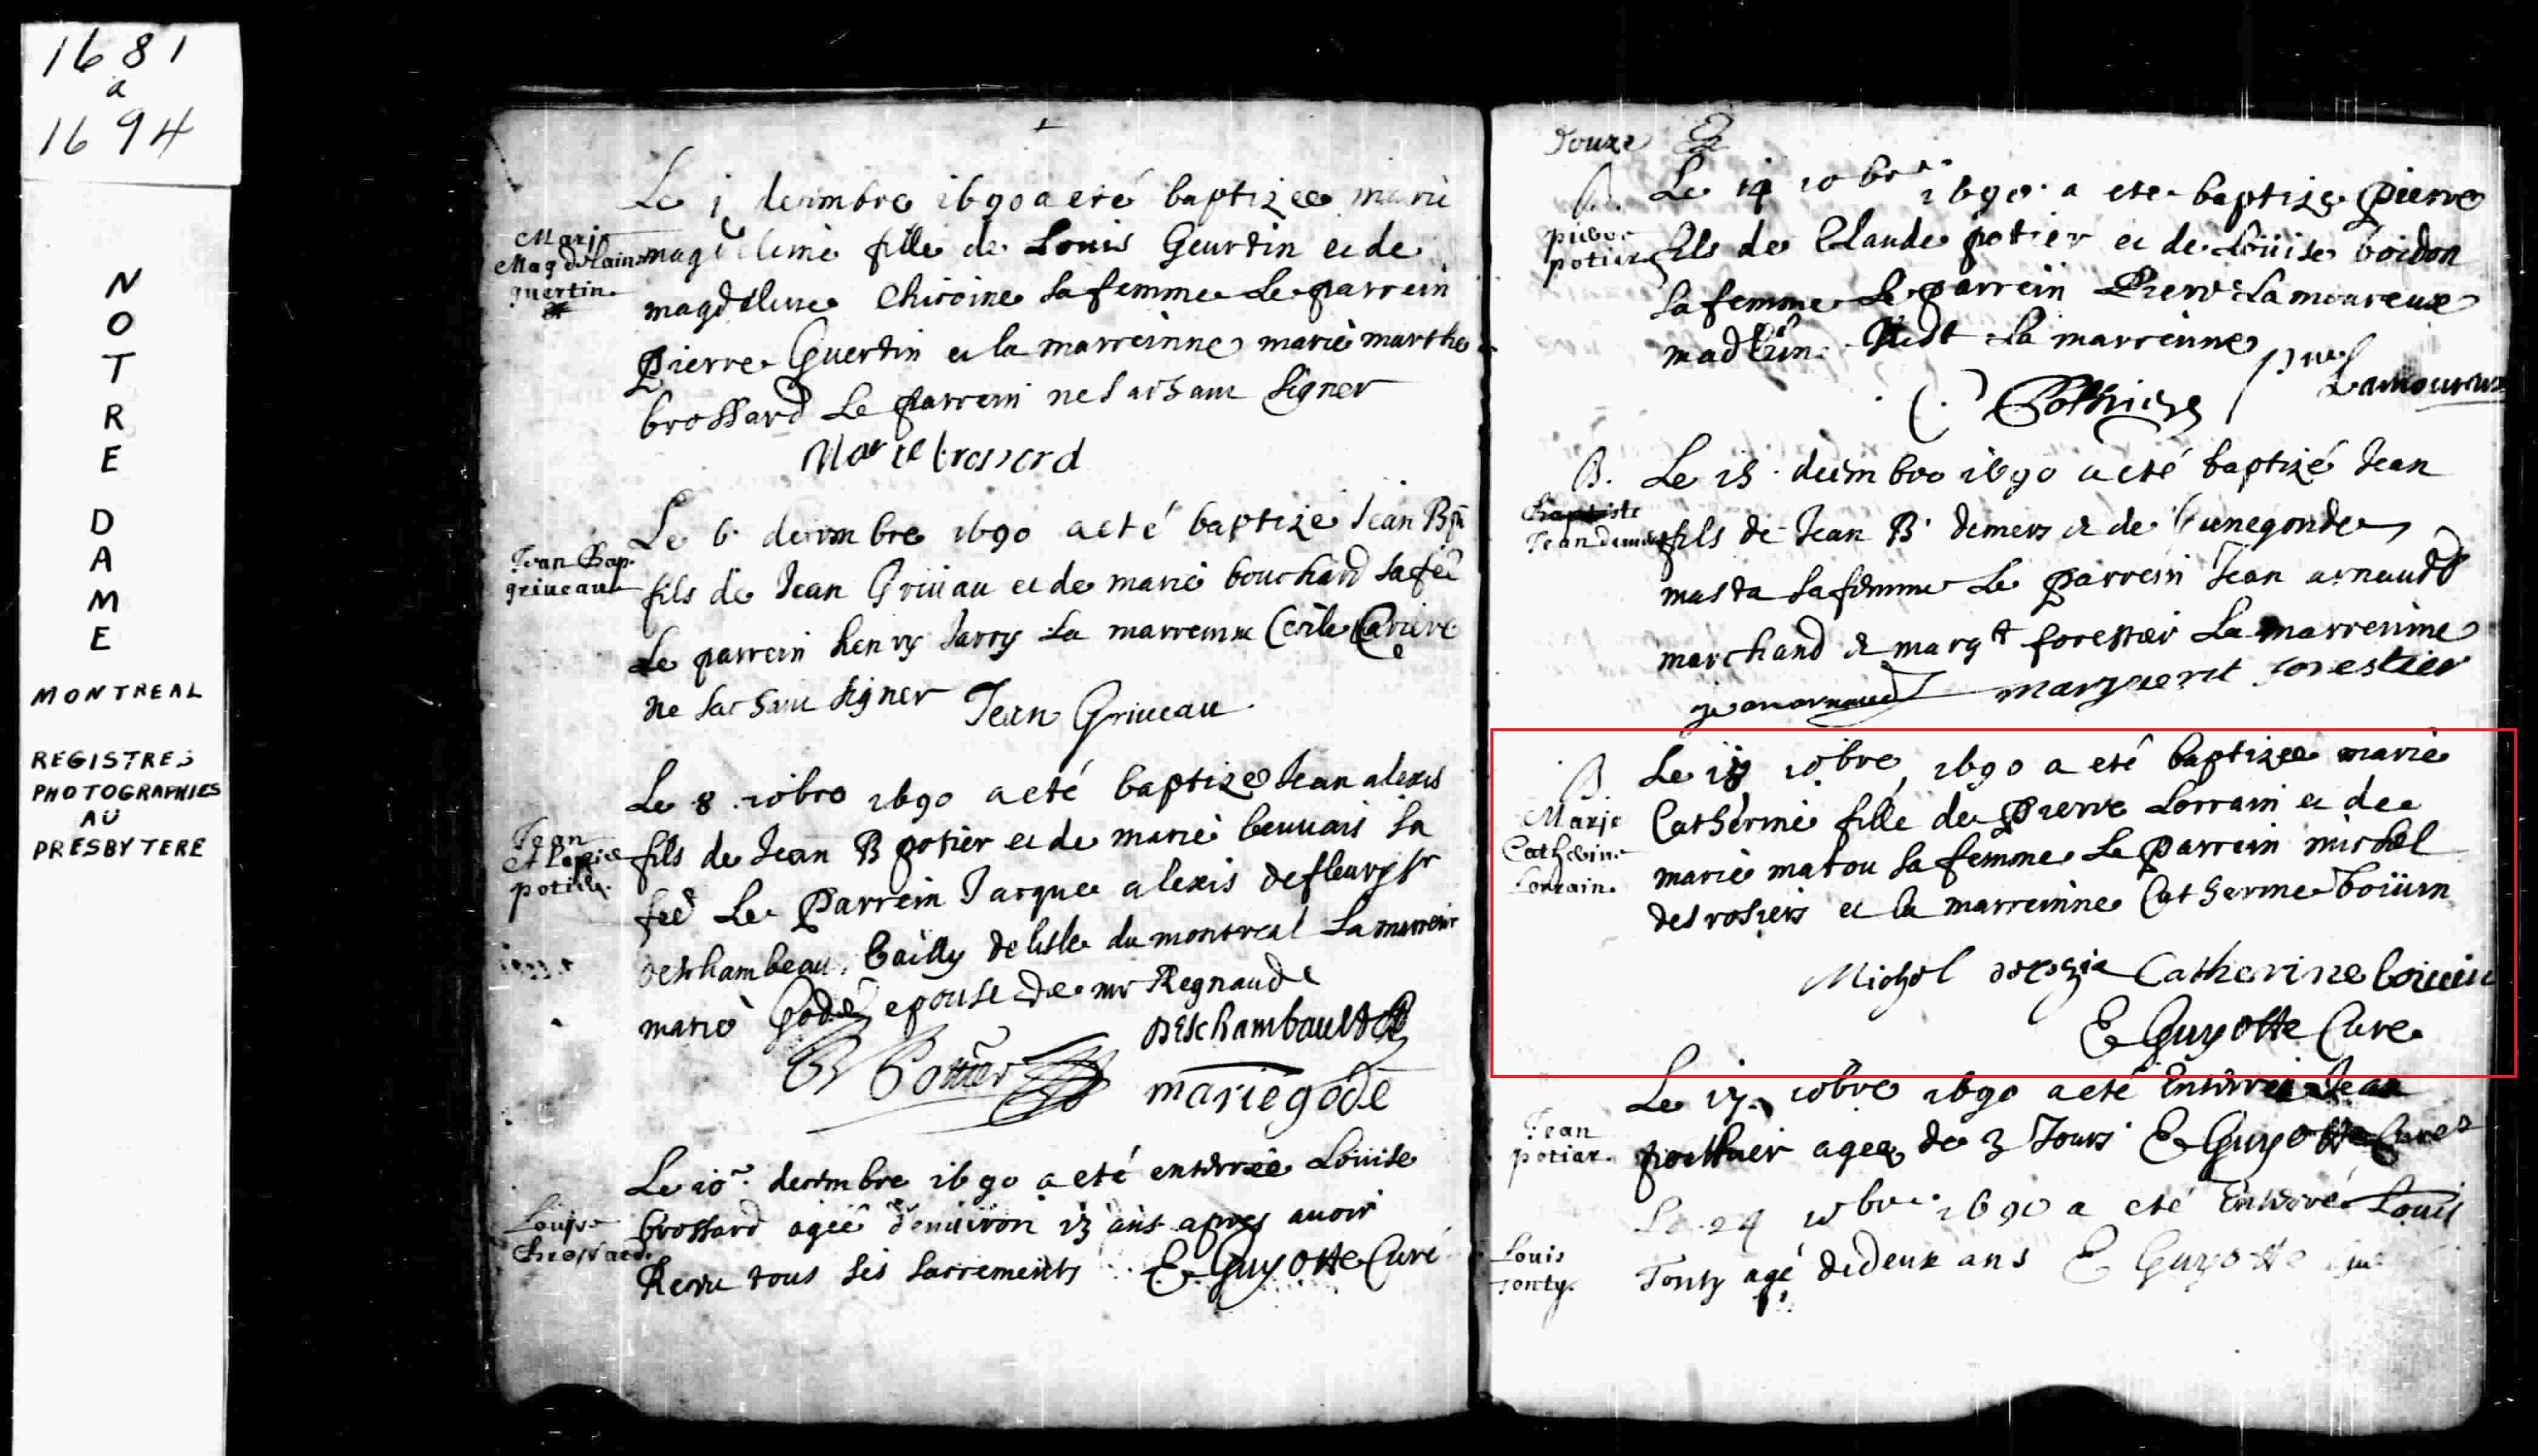 1681
a
1694
NOTRE
DAME
MONTREAL
REGISTRES
PHOTOGRAPHIES
AU
PRESBYTERE
Le 1 decembre 1690 a eté baptizee marie
Marie
Magdelaine
guertin
magdeleine fille de Louis Geurtin et de
magdeleine Chicoine sa femme Le parrein
Pierre Guertin et la marreinne marie marthe
brossard Le parrein ne sachant signer
Marie brossard
Le 6 decembre 1690 a eté baptizé Jean Bp
Jean Bap.
griueau
fils de Jean Griuau et de marie bouchard sa fee
Le parrein henry Jarry La marreinne Cecile
ne sachant signer Jean Griueau
Le 8 10bre 1690 a eté baptizé Jean alexis
Jean
Alexis
potier
fils de Jean B potier et de marie beuuais sa
fee Le Parrein Jacque alexis defleury sr
deschambeau, bailly de lisle du montreal La marreine
marie Godé epouse de mr Regnaude
Potier
DESchambault
marie gode
Le 10 decembre 1690 a eté enterrée Louise
Louise
brossard.
brossard agée denuiron 13 ans apres auoir
Receu tous ses sacrements E Guyotte Curé
Douze
B.
Le 14 10bre 1690 a ete baptizé pierre
pierre
potier
fils de Claude potier et de Loüise boidon
sa femme Le parrein Pierre Lamoureux
La marreinne
Lamoureux
B. Le 15 decembre 1690 a eté baptizé Jean
Jean demers
fils de Jean B demers & de Cunegonde
masta sa femme Le Parrein Jean arnaud
marchand & margt forestier La marreinne
jean arnaud marguerit forestier
B
Le 10bre 1690 a eté baptizee marie
Marie
Catherine
Lorrain.
Catherine fille de Pierre Lorrain et de
marie matou sa femme Le Parrein michel
desrosiers et la marreinne Catherine boiuin
Michel Catherine boiuin
E Guyotte Cure
Le 17 10bre 1690 a eté Enterré Jean
Jean
potier.
pothier agee de 3 Jours E Guyotte Curé
Le 24 10bre 1690 a eté Enterré Louis
Louis
Tonty.
Tonty agé de deux ans E Guyotte